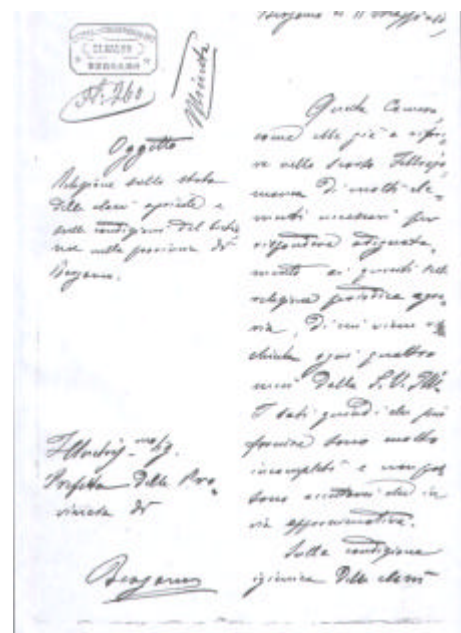 Bergamo li 11 Maggio
BERGAMO
N. 260
Minuta
Oggetto
Relazione sullo stato
delle classi agricole e
sulle condizioni del
nella provincia di
Bergamo.
Illustriss.mo Sig.
Prefetto della Pro-
vincia di
Bergamo
Questa Camera,
come ebbe già a riferi-
re nello scorso Febbrajo
manca di molti ele-
menti necessari per
rispondere adeguata-
mente ai quesiti della
relazione periodica agra-
ria, di cui viene ri-
chiesta ogni quattro
mesi dalla S. V. Ill.
I dati quindi che può
fornire sono molto
incompleti e non pos-
sono accettarsi che in
via approssimativa.
Sulla condizione
igienica delle classi